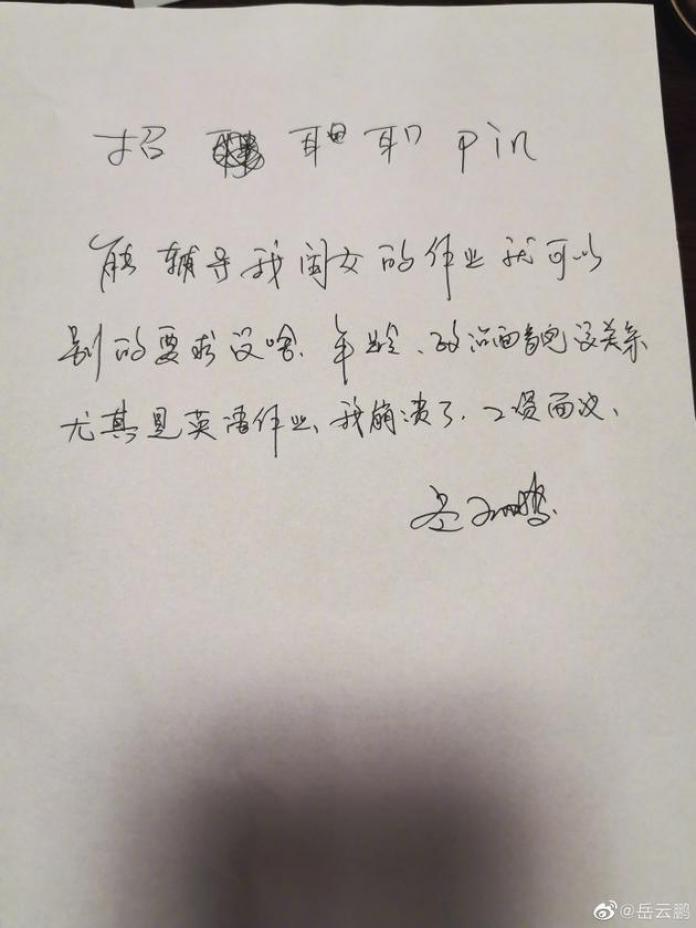 招 pin
能辅导我闺女的作业就可以
别的要求没啥、年龄、政治面貌没关系
尤其是英语作业、我崩溃了、工资面议、
岳云鹏
@岳云鹏